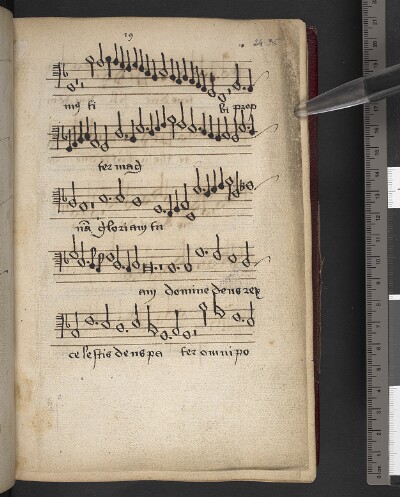 19
mꝰ ti bi prop
ter mag
nā gloriam tu
am domine deus rex
celestis deus pa ter omnipo